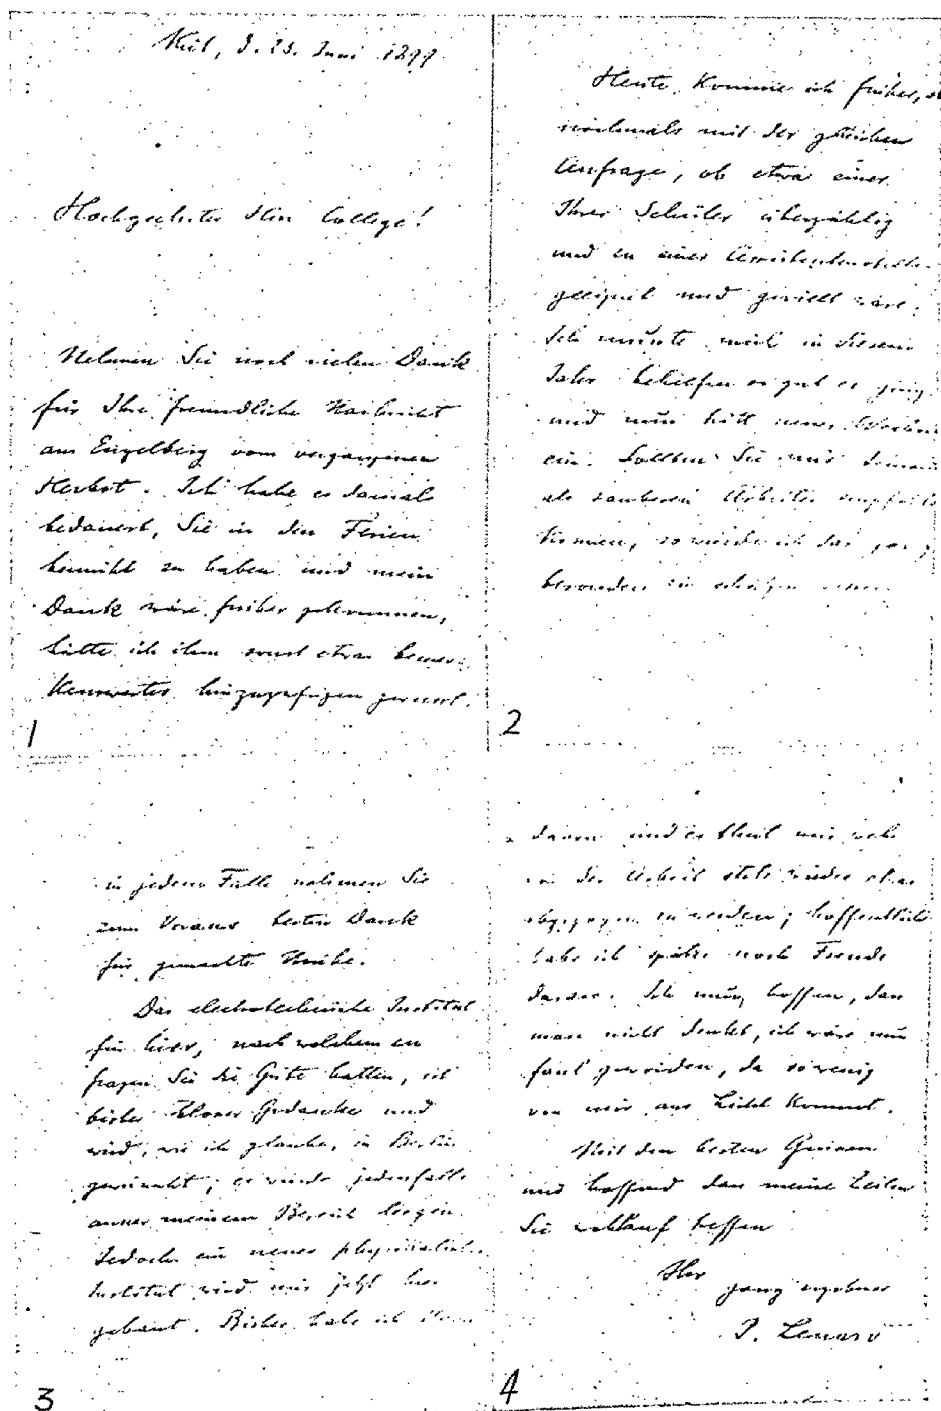 Kiel, d. 23. Juni 1899.
Hochgeehrter Herr College!
Nehmen Sie noch vielen Dank
für Ihre freundliche Nachricht
am Engelberg vom vergangenen
Herbst. Ich habe es damals
bedauert, Sie in den Ferien
bemüht zu haben und mein
Dank wäre früher gekommen,
hätte ich ihm sonst etwas bemer-
kenswertes hinzuzufügen gewusst.
1
Heute komme ich früher,
nochmals mit der gleichen
Anfrage, ob etwa einer
Ihrer Schüler überzählig
und zu einer Assistentenstelle
geeignet und gewillt wäre.
Ich musste mich in diesem
Jahr behelfen so gut es ging
und nun tritt neuer
ein. Sollten Sie mir
als sauberen Arbeiter
können, so würde ich das ganz
besonders zu schätzen
2
in jedem Falle nehmen Sie
zum Voraus besten Dank
für gemachte Mühe.
Das electrotechnische Institut
für hier, nach welchem zu
fragen Sie die Güte hatten, ist
bisher blosser Gedanke und
wird, wie ich glaube, in Berlin
gewünscht; es würde jedenfalls
ausser meinem Bereich liegen.
Jedoch ein neues physikalisches
Institut wird mir jetzt hier
gebaut. Bisher habe ich
3
davon und es thut mir weh
von der Arbeit stets wieder
abgezogen zu werden; hoffentlich
habe ich später noch Freude
daran. Ich muss hoffen, dass
man nicht denkt, ich wäre nun
faul geworden, da so wenig
von mir ans Licht kommt.
Mit den besten Grüssen
und hoffend dass meine Zeilen
Sie wohlauf treffen
Ihr
ganz ergebener
P. Lenard
4